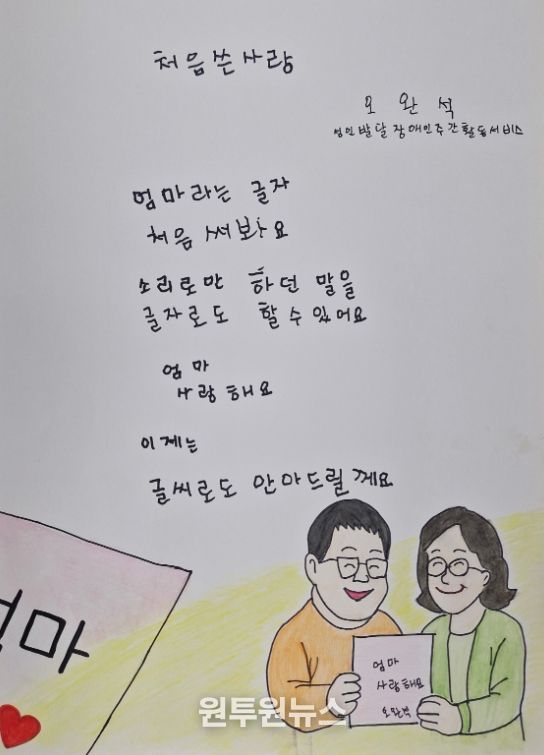 처음 쓴 사랑
오 완 석
성인발달장애인주간활동서비스
엄마라는 글자
처음 써봐요
소리로만 하던 말을
글자로도 할 수 있어요
엄마
사랑해요
이제는
글씨로도 안마드릴께요
엄마
엄마
사랑해요
오완석
원투원뉴스